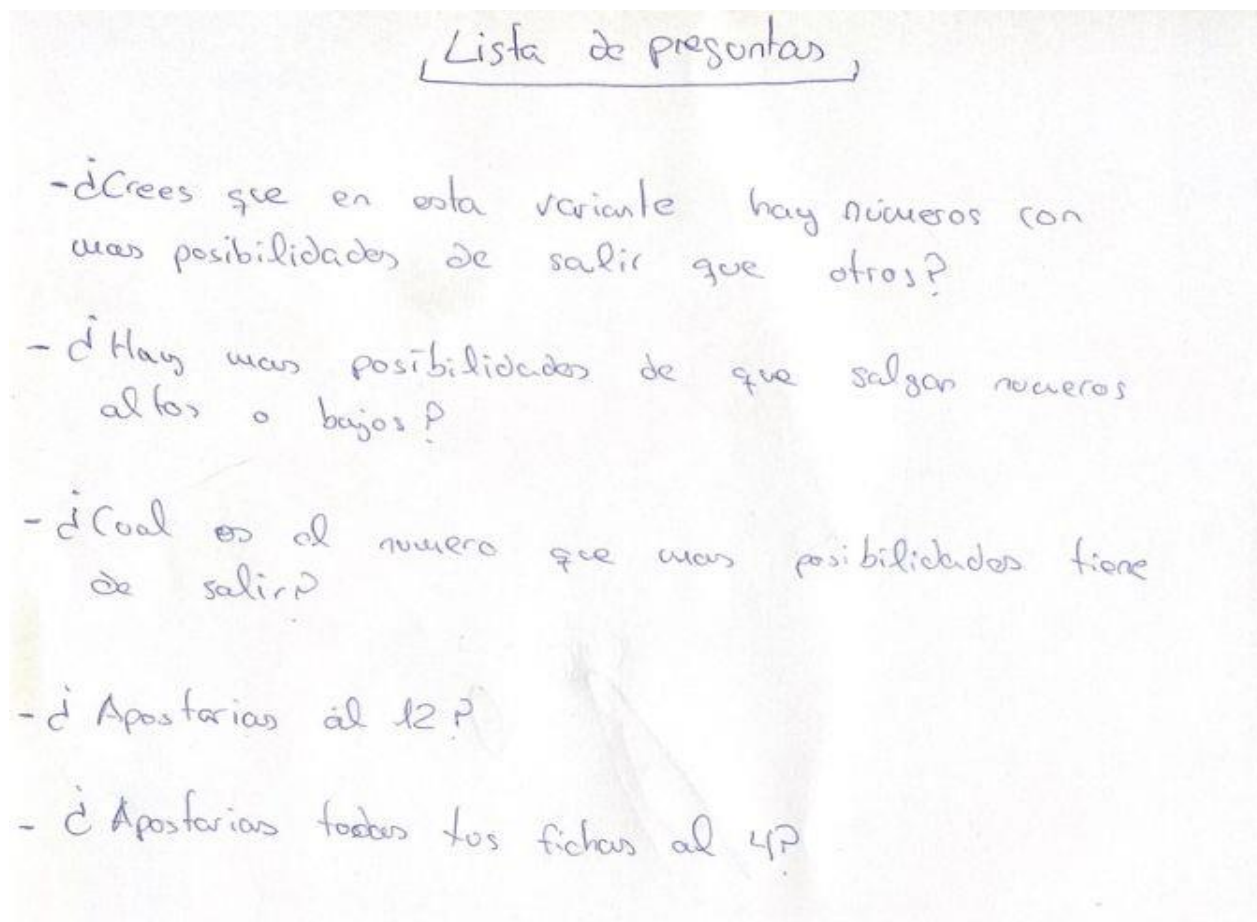 Lista de preguntas
- ¿Crees que en esta variante hay números con
mas posibilidades de salir que otros?
- ¿Hay mas posibilidades de que salgan numeros
altos o bajos?
- ¿Cual es el numero que mas posibilidades tiene
de salir?
- ¿Apostarias al 12?
- ¿Apostarias todas tus fichas al 4?